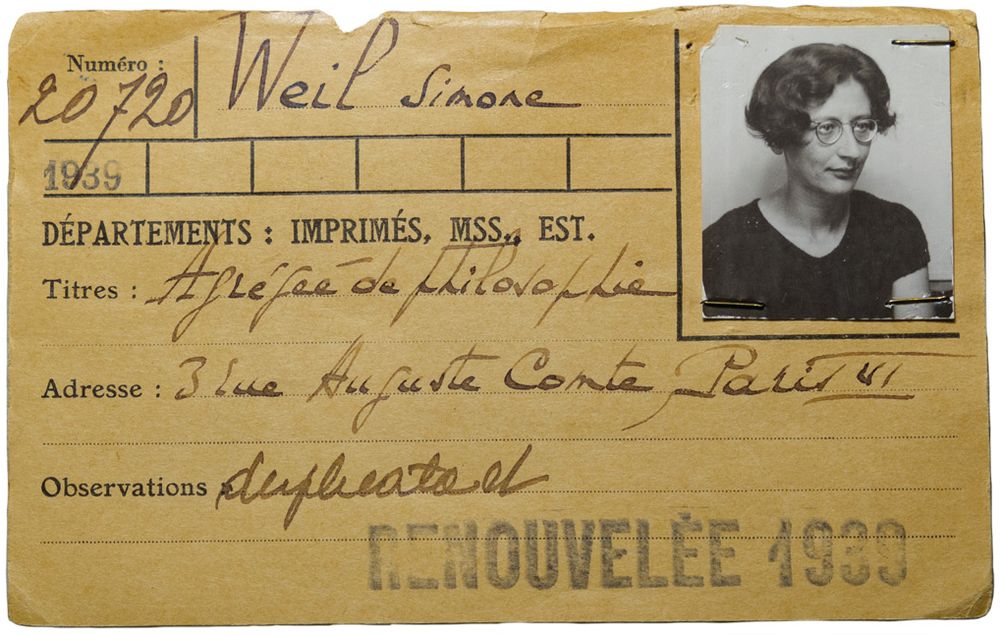 Numéro :
20720 Weil Simone
1939
DÉPARTEMENTS : IMPRIMÉS, MSS., EST.
Titres : Agrégée de philosophie
Adresse : 3 rue Auguste Comte Paris VI
Observations : duplicata
RENOUVELÉE 1939